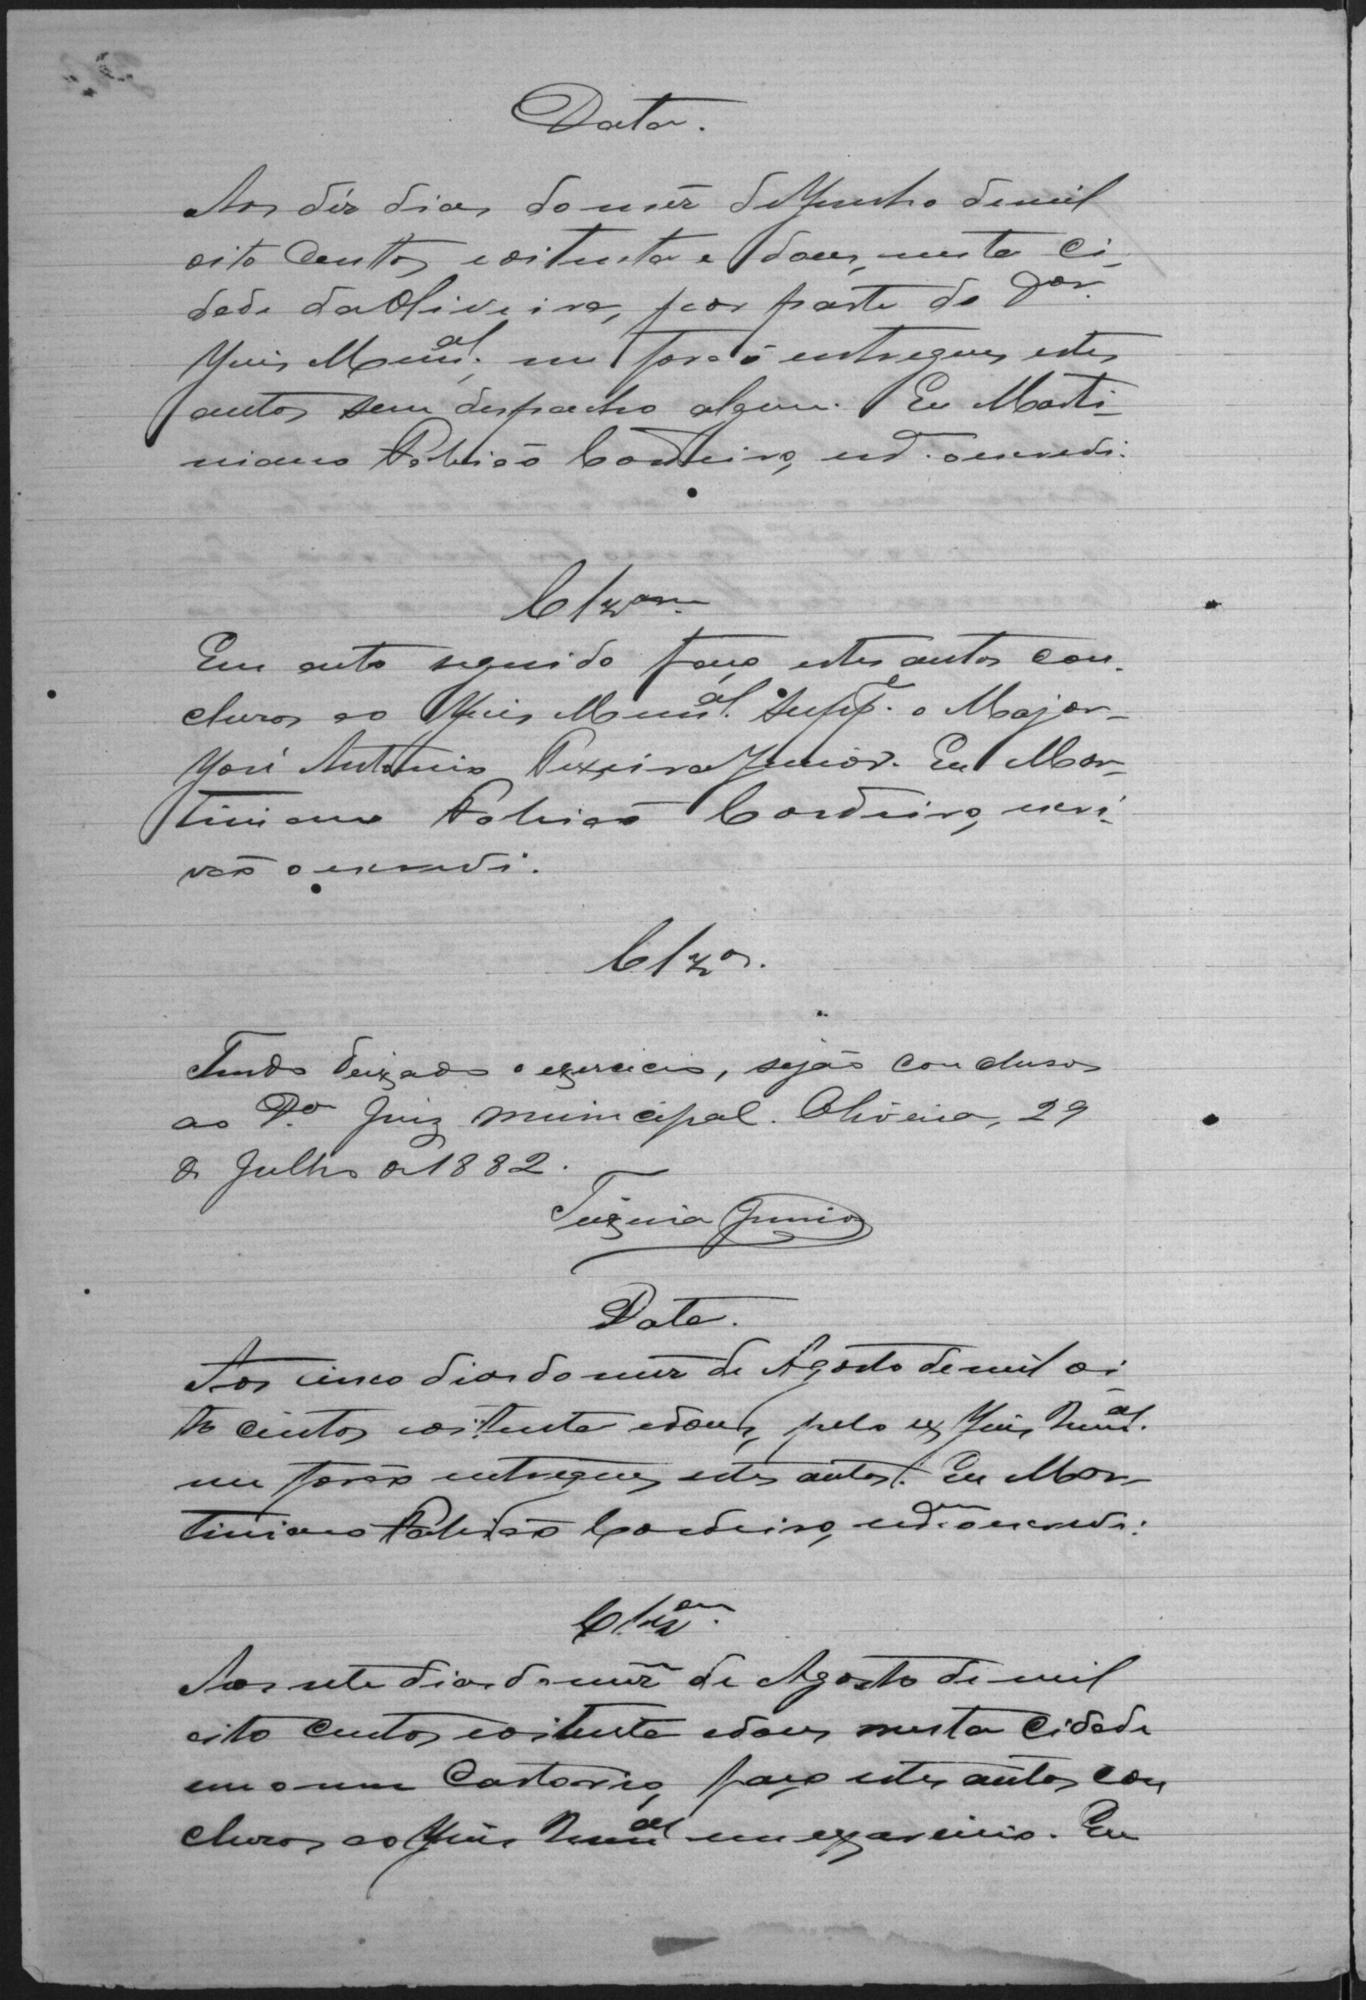 Data.
Aos déz dias do mez de Junho de mil
oito centos e oitenta e dous, nesta Ci-
dade da Oliveira, por parte do Dor.
Juis Munal. me forão entregues estes
autos sem despacho algum. Eu Marti-
niano Cordeiro, o escrevi.
Clzam.
Em acto seguido faço estes autos con-
cluzos ao Juis Munal. Suppe. o Major
José Antonio Texeira Junior. Eu Mar-
tiniano Cordeiro, escri-
vão o escrevi.
Clzos.
Tendo deixado o exercicio, sejão conclusos
ao Dor Juiz Municipal. Oliveira, 29
de Julho de 1882.
Teixeira Junior
Data.
Aos cinco dias do mez de Agosto de mil oi
to centos e oitenta e dous, pelo ex Juis Munal.
me forão entregues estes autos. Eu Mar-
tiniano Cordeiro, o escrevi.
Clzam.
Aos sete dias do mez de Agosto de mil
oito centos e oitenta e dous nesta Cidade
em o meu Cartorio, faço estes autos con
cluzos ao Juis Munal em exercicio. Eu